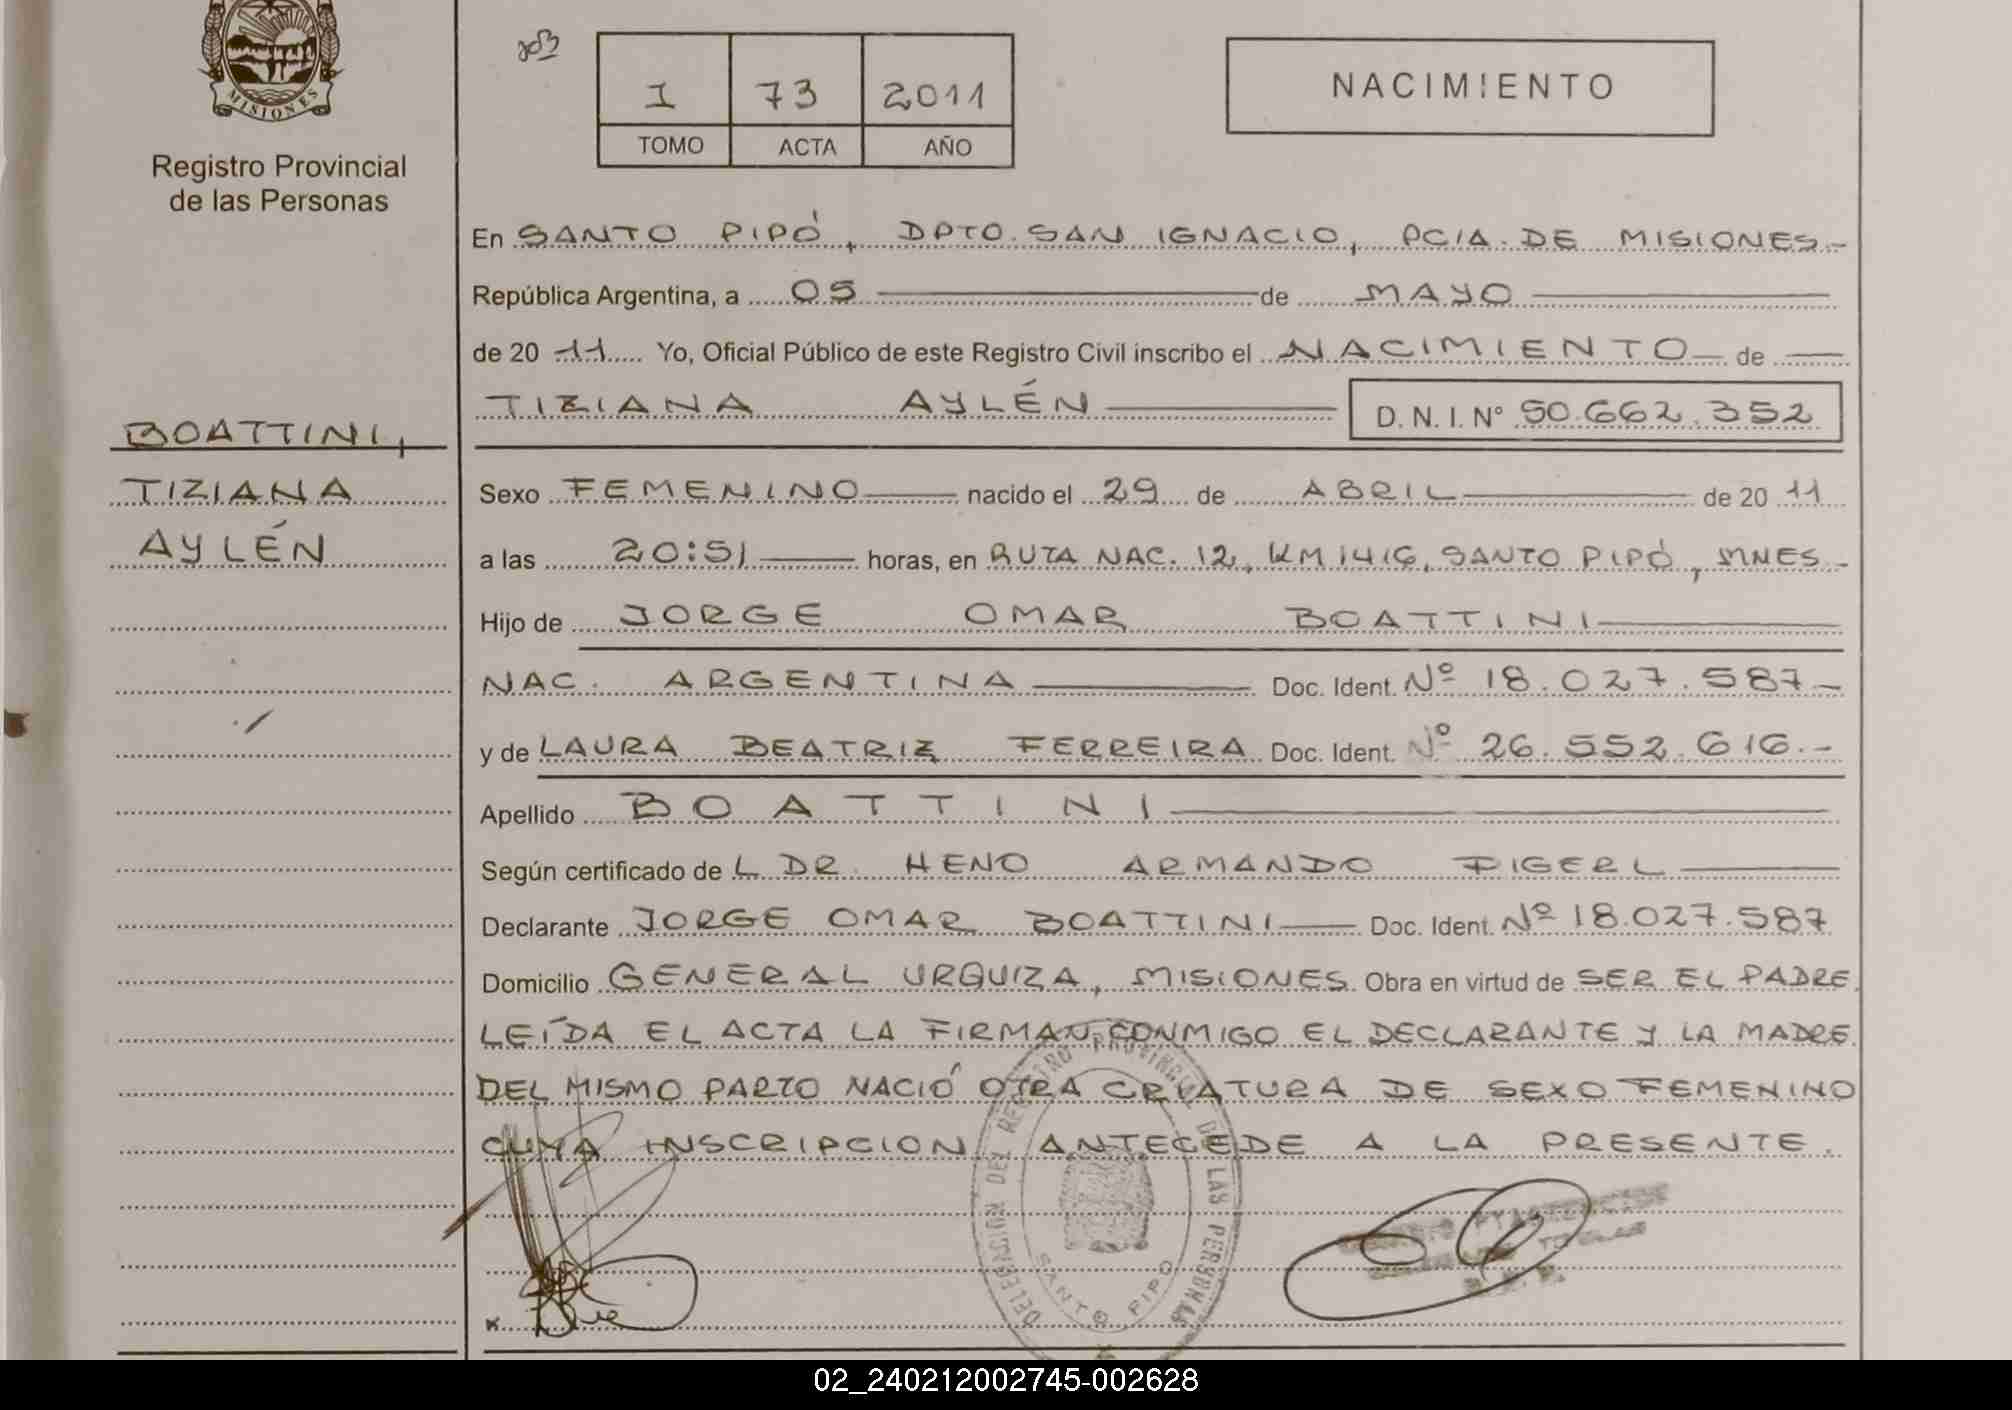 MISIONES
Registro Provincial
de las Personas
BOATTINI,
TIZIANA
AYLÉN
I 73 2011
TOMO ACTA AÑO
NACIMIENTO
En SANTO PIPÓ, DPTO. SAN IGNACIO, PCIA. DE MISIONES.-
República Argentina, a 05 de MAYO
de 20 11 Yo, Oficial Público de este Registro Civil inscribo el NACIMIENTO de
TIZIANA AYLÉN D. N. I. N° 50.662.352
Sexo FEMENINO nacido el 29 de ABRIL de 20 11
a las 20:51 horas, en RUTA NAC. 12, KM 1416, SANTO PIPÓ, MNES.-
Hijo de JORGE OMAR BOATTINI
NAC. ARGENTINA Doc. Ident. Nº 18.027.587-
y de LAURA BEATRIZ FERREIRA Doc. Ident. Nº 26.552.616.-
Apellido BOATTINI
Según certificado de L DR. HENO ARMANDO FIGERL
Declarante JORGE OMAR BOATTINI Doc. Ident. Nº 18.027.587
Domicilio GENERAL URQUIZA, MISIONES. Obra en virtud de SER EL PADRE.
LEÍDA EL ACTA LA FIRMAN CONMIGO EL DECLARANTE Y LA MADRE.
DEL MISMO PARTO NACIÓ OTRA CRIATURA DE SEXO FEMENINO
CUYA INSCRIPCION ANTECEDE A LA PRESENTE.
DELEGACION DEL REGISTRO PROVINCIAL DE LAS PERSONAS
SANTO PIPO
02_240212002745-002628